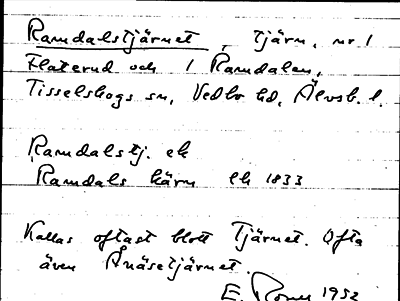 Ramdalstjärnet, tjärn, nr 1
Flaterud och 1 Ramdalen,
Tisselskogs sn, Vedbo hd, Älvsb. l.
Ramdalstj. ek
Ramdals kärn ek 1833
Kallas oftast blott Tjärnet. Ofta
även Ånäsetjärnet.
E. 1952